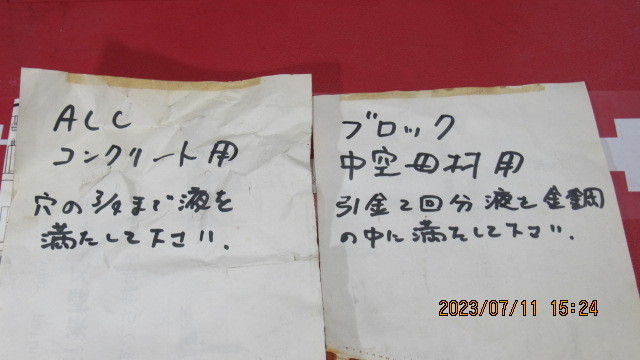 ALC
コンクリート用
穴の3/4まで液を
満たして下さい.
ブロック
中空母材用
引金2回分液を金網
の中に満たして下さい.
2023/07/11 15:24